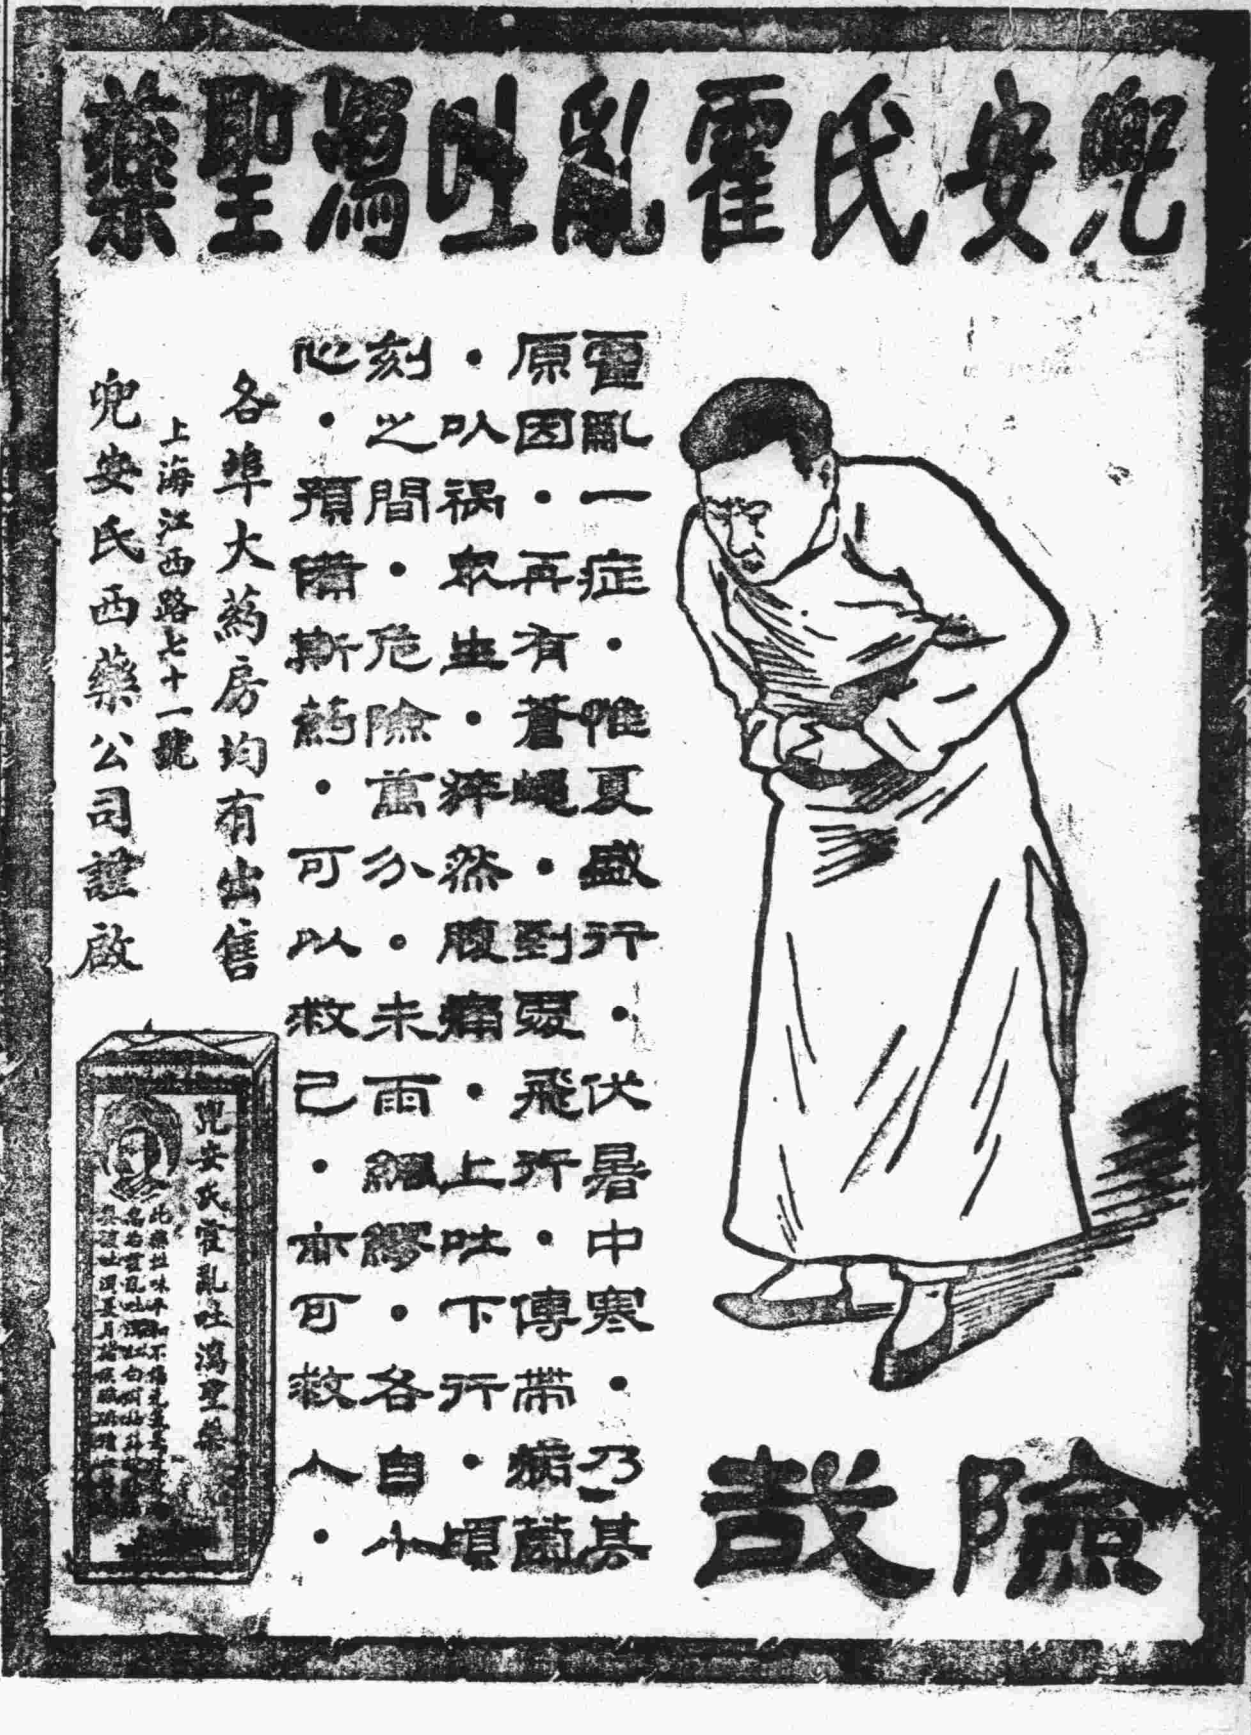 兜安氏霍亂吐瀉聖藥
險哉
霍亂一症・惟夏盛行・伏暑中寒・乃其
原因・再有蒼蠅・到處飛行・傳帶病菌
・以禍眾生・猝然腹痛・上吐下行・頃
刻之間・危險萬分・未雨綢繆・各自小
心・預備斯药・可以救己・亦可救人・
各埠大药房均有出售
上海江西路七十一號
兜安氏西藥公司謹啟
兜安氏霍亂吐瀉聖藥